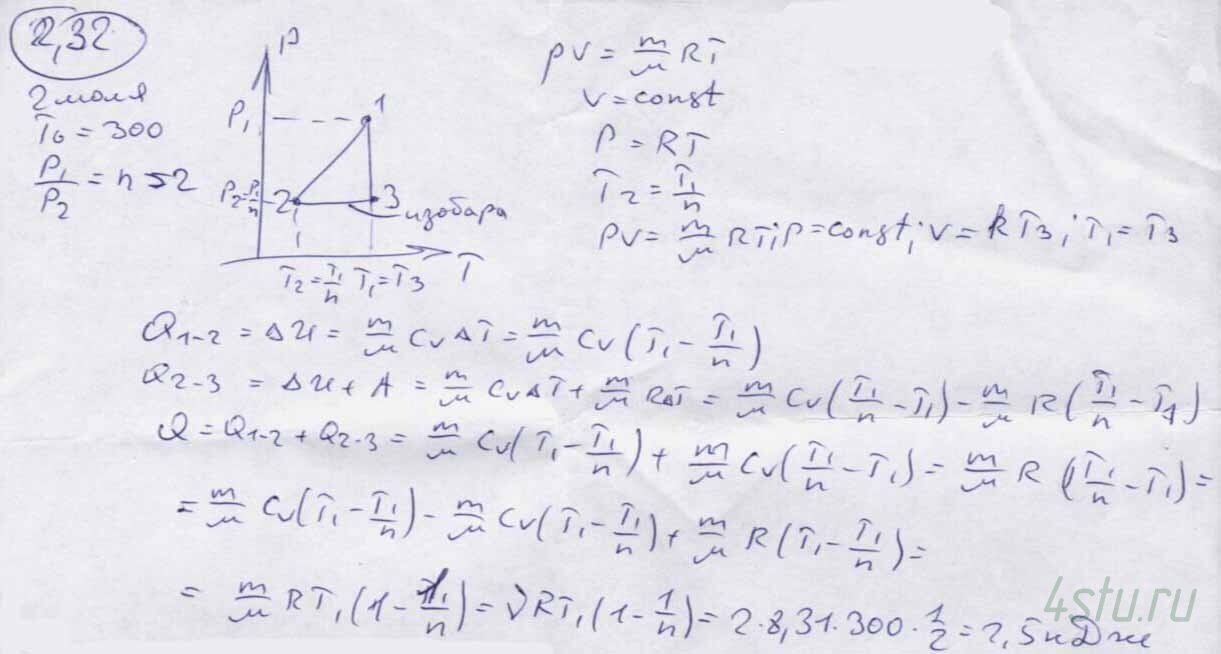 2,32
2 моля
T₀ = 300
P₁/P₂ = n = 2
P
P₁
1
P₂ = P₁/n
2
3
изобара
T₂ = T₁/n T₁ = T₃
T
pV = m/μ RT
V = const
P = RT
T₂ = T₁/n
PV = m/μ RT; P = const; V = RT₃; T₁ = T₃
Q₁₋₂ = ΔU = m/μ Cv ΔT = m/μ Cv (T₁ - T₁/n)
Q₂₋₃ = ΔU + A = m/μ CvΔT + m/μ RΔT = m/μ Cv (T₁/n - T₁) - m/μ R (T₁/n - T₁)
Q = Q₁₋₂ + Q₂₋₃ = m/μ Cv (T₁ - T₁/n) + m/μ Cv (T₁/n - T₁) = m/μ R (T₁/n - T₁) =
= m/μ Cv (T₁ - T₁/n) - m/μ Cv (T₁ - T₁/n) + m/μ R (T₁ - T₁/n) =
= m/μ RT₁ (1 - 1/n) = νRT₁ (1 - 1/n) = 2·8,31·300·1/2 = 2,5кДж
4stu.ru